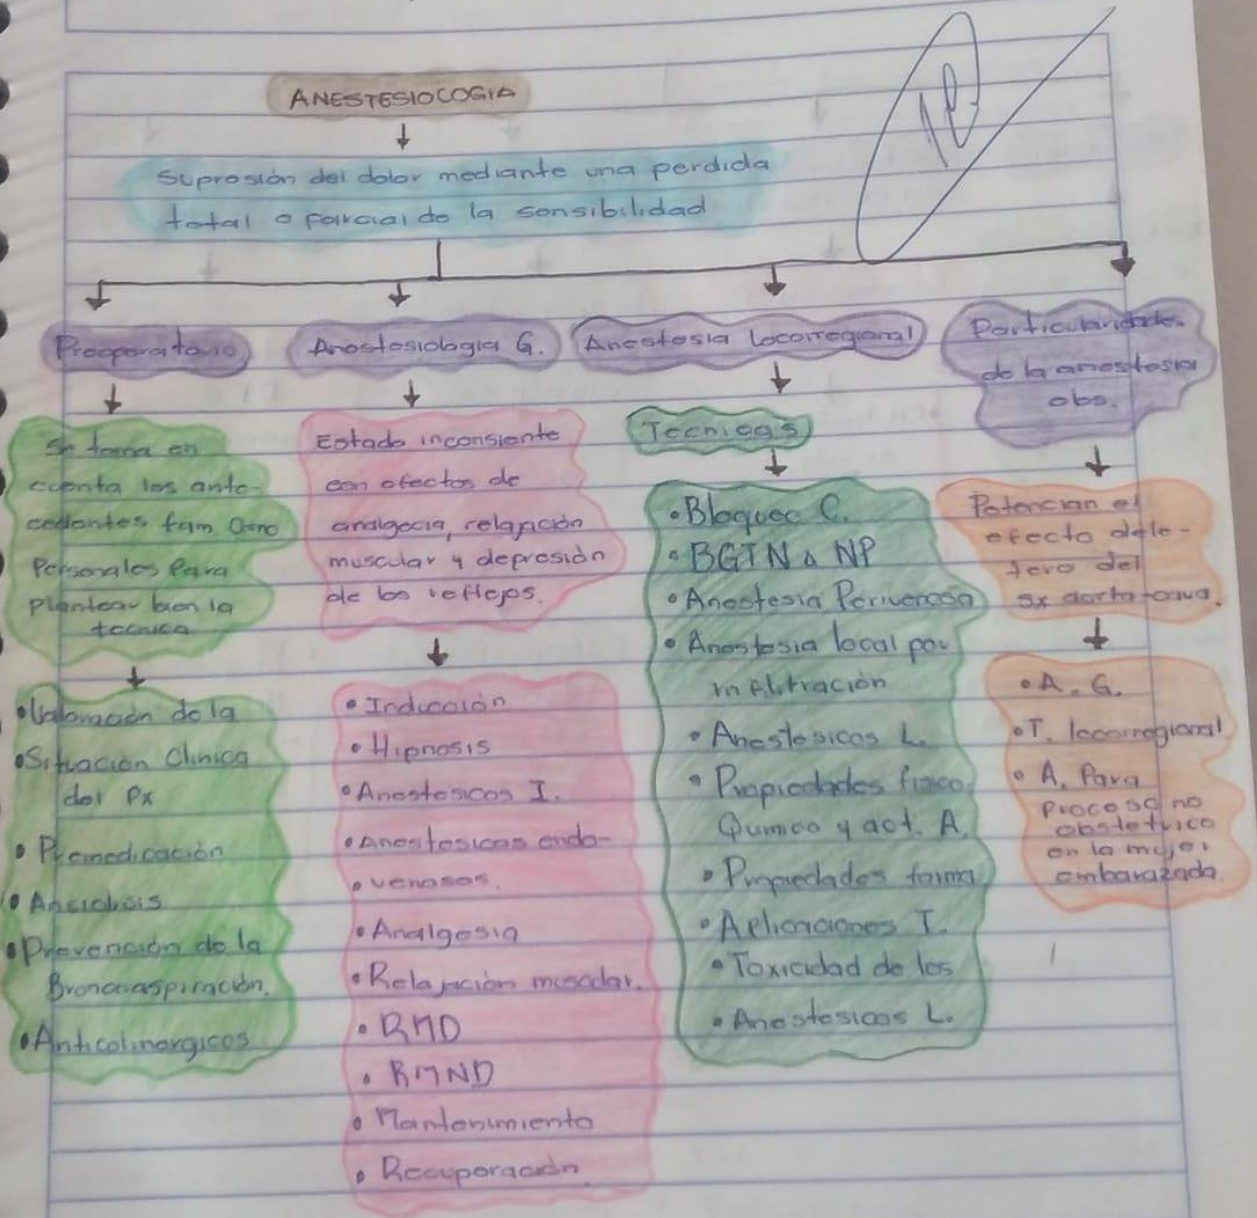 ANESTESIOCOGIA
Supresión del dolor mediante una perdida
total o parcial de la sensibilidad
Preoperatorio
Anestesiologia G.
Anestesia locorregional
Particularidades
de la anestesia
obs.
Se toma en
cuenta los ante-
cedentes fam como
Personales Para
plantear bien la
tecnica
Valoración de la
Situación Clinica
del Px
Premedicación
Ansiolisis
Prevención de la
Broncoaspiración.
Anticolinergicos
Estado inconsiente
con efectos de
analgecia, relajación
muscular y depresión
de los reflejos.
• Inducción
• Hipnosis
• Anestesicos I.
• Anestesicos endo-
• venosos.
• Analgesia
• Relajación muscular.
• RMD
• RMND
• Mantenimiento
• Recuperación
Tecnicas
• Bloqueo C.
• BGTN o NP
• Anestesia Perivenosa
• Anestesia local por
infiltración
• Anestesicos L.
• Propiedades fisico
Quimico y act. A.
• Propiedades farma
• Aplicaciones T.
• Toxicidad de los
• Anestesicos L.
Potencian el
efecto dele-
tero del
sx aorta cava.
• A. G.
• T. locorregional
• A. Para
proceso no
obstetrico
en la mujer
embarazada